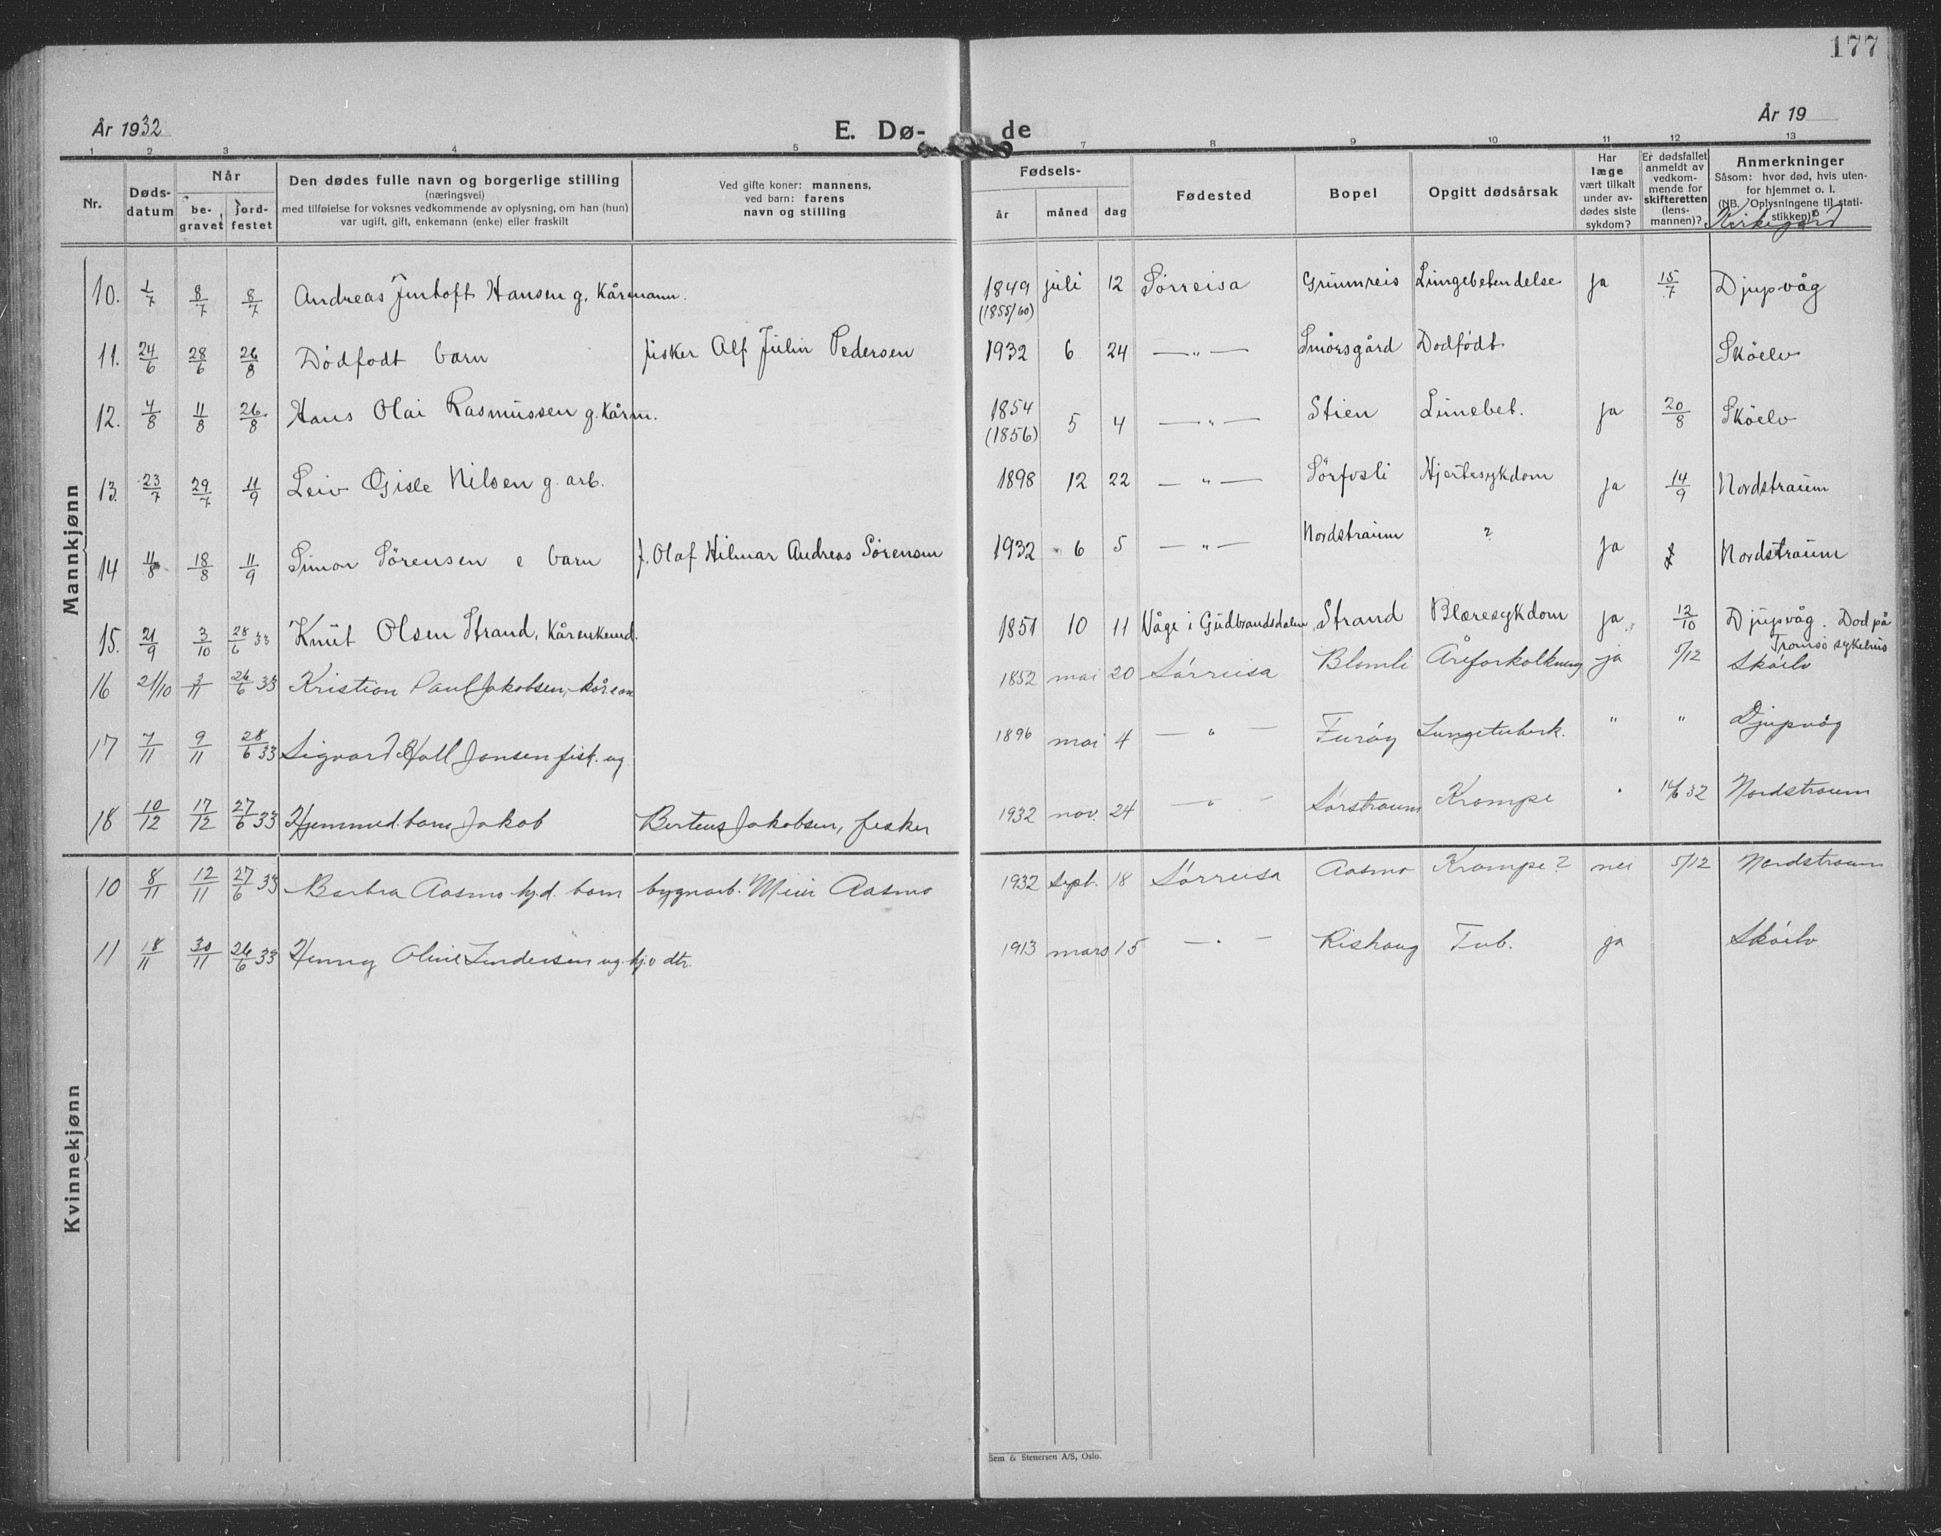 177
År 1932
E. Dø-
de
År 19
1 2 3 4 5 7 8 9 10 11 12 13
Nr.
Døds-
datum
Når
be-
gravet
jord-
festet
Den dødes fulle navn og borgerlige stilling
(næringsvei)
med tilføielse for voksnes vedkommende av oplysning, om han (hun)
var ugift, gift, enkemann (enke) eller fraskilt
Ved gifte koner: mannens,
ved barn: farens
navn og stilling
Fødsels-
år måned dag
Fødested
Bopel
Opgitt dødsårsak
Har
læge
vært tilkalt
under av-
dødes siste
sykdom?
Er dødsfallet
anmeldt av
vedkom-
mende for
skifteretten
(lens-
mannen)?
Anmerkninger
Såsom: hvor død, hvis uten-
for hjemmet o. l.
(NB. Oplysningene til stati-
stikken)
Kirkegård
Mannkjønn
10. 1/7 8/7 8/7 Andreas Jenhoft Hansen g. Kårmann. 1849 (1855/60) juli 12 Sørreisa Grunnreis Lungebetendelse ja 15/7 Djupvåg
11. 24/6 28/6 26/8 Dödfödt barn fisker Alf Julin Pedersen 1932 6 24 — „ — Smörsgård Dödfödt Sköelv
12. 4/8 11/8 26/8 Hans Olai Rasmussen g. Kårm. 1854 (1856) 5 4 — „ — Stien Lunebet. ja 20/8 Sköelv
13. 23/7 29/7 11/9 Leiv Gisle Nilsen g. arb. 1898 12 22 — „ — Sörfosli Hjertesykdom ja 14/9 Nordstraum
14 11/8 18/8 11/9 Simon Sörensen e barn f. Olaf Hilmar Andreas Sörensen 1932 6 5 — „ — Nordstraum ? ja Nordstraum
15. 21/9 3/10 28/6 33 Knut Olsen Strand, Kårenkemd. 1851 10 11 Våge i Gudbrandsdalen Strand Blæresykdom ja. 12/10 Djupvåg. Död på
Tromsö sykehus
16 21/10 3/11 26/6 33 Kristian Paul Jakobsen, kårem 1852 mai 20 Sørreisa Blomli Åreforkalkning ja 5/12 Skóelv
17 7/11 9/11 28/6 33 Sigvard Hall Jensen fisk. ug. 1896 mai 4 — „ — Furöy Lungetuberk. " " Djupvåg
18 10/12 17/12 27/6 33 Hjemmed. barn Jakob Berteus Jakobsen, fisker 1932 nov. 24 — „ — Sørstraum Krampe " 14/6 32 Nordstraum
Kvinnekjønn
10 8/11 12/11 27/6 33 Barbra Aasmo hj.d. barn bygnarb. Meier Aasmo 1932 sept. 18 Sørreisa Aasmo Krampe? nei 5/12 Nordstraum
11 18/11 30/11 26/6 33 Henny Oline Lindersen ug. hj.v dtr. 1913 mars 15 — „ — Rishaug Tub. ja Skóelv
Sem & Stenersen A/S, Oslo.